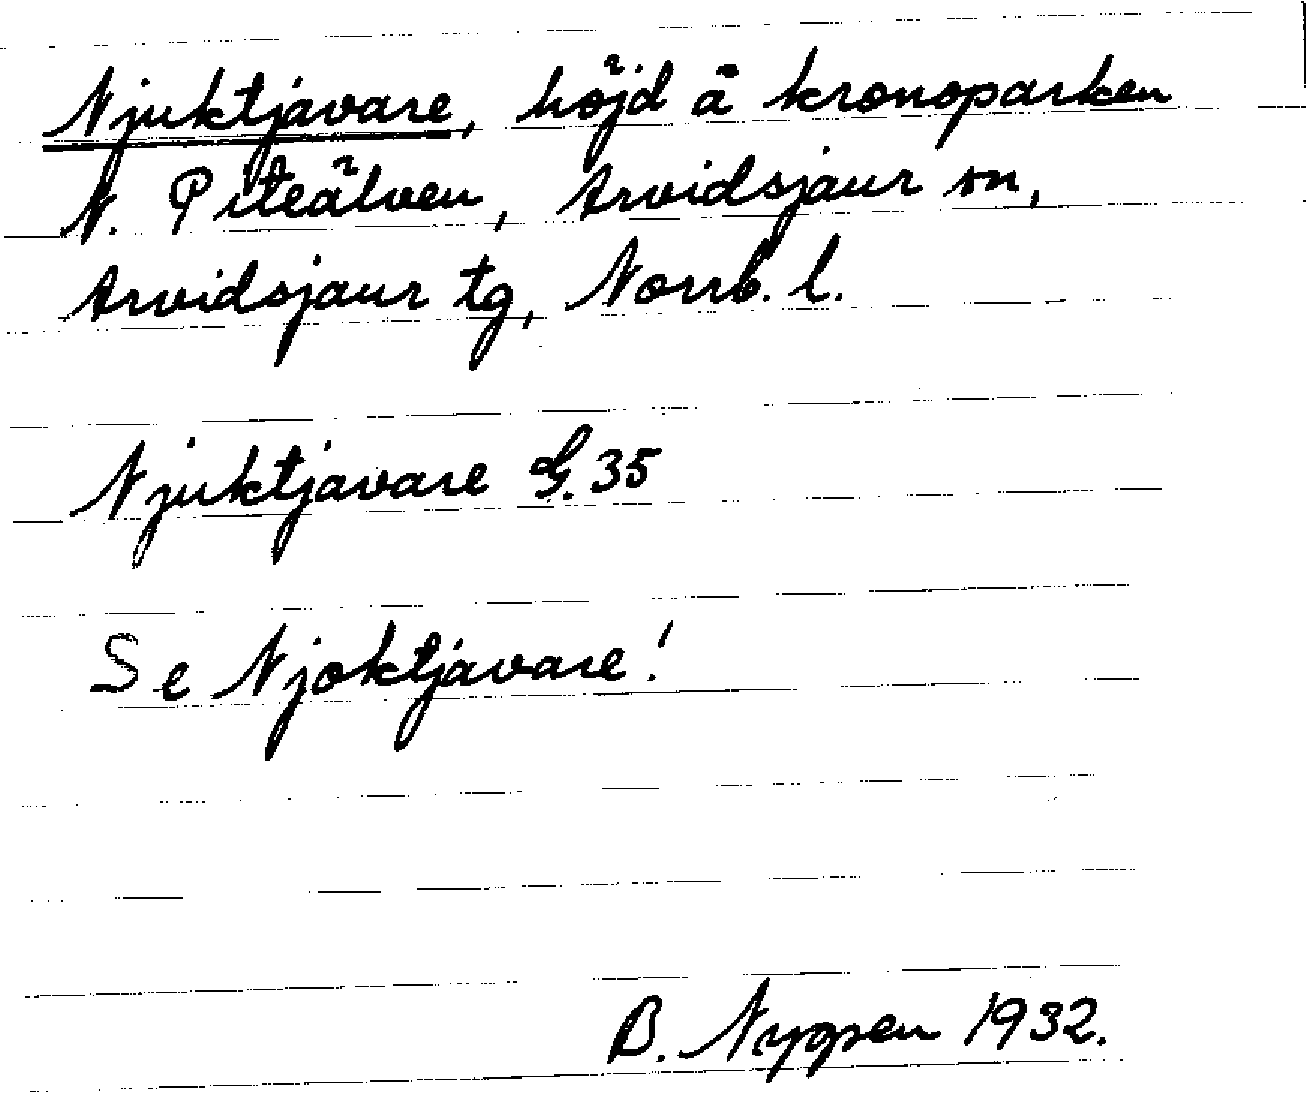 Njuktjavare, höjd å kronoparken
N. Piteälven, Arvidsjaur sn,
Arvidsjaur tg, Norrb. l.
Njuktjavare G. 35
Se Njoktjavare!
B. 1932.